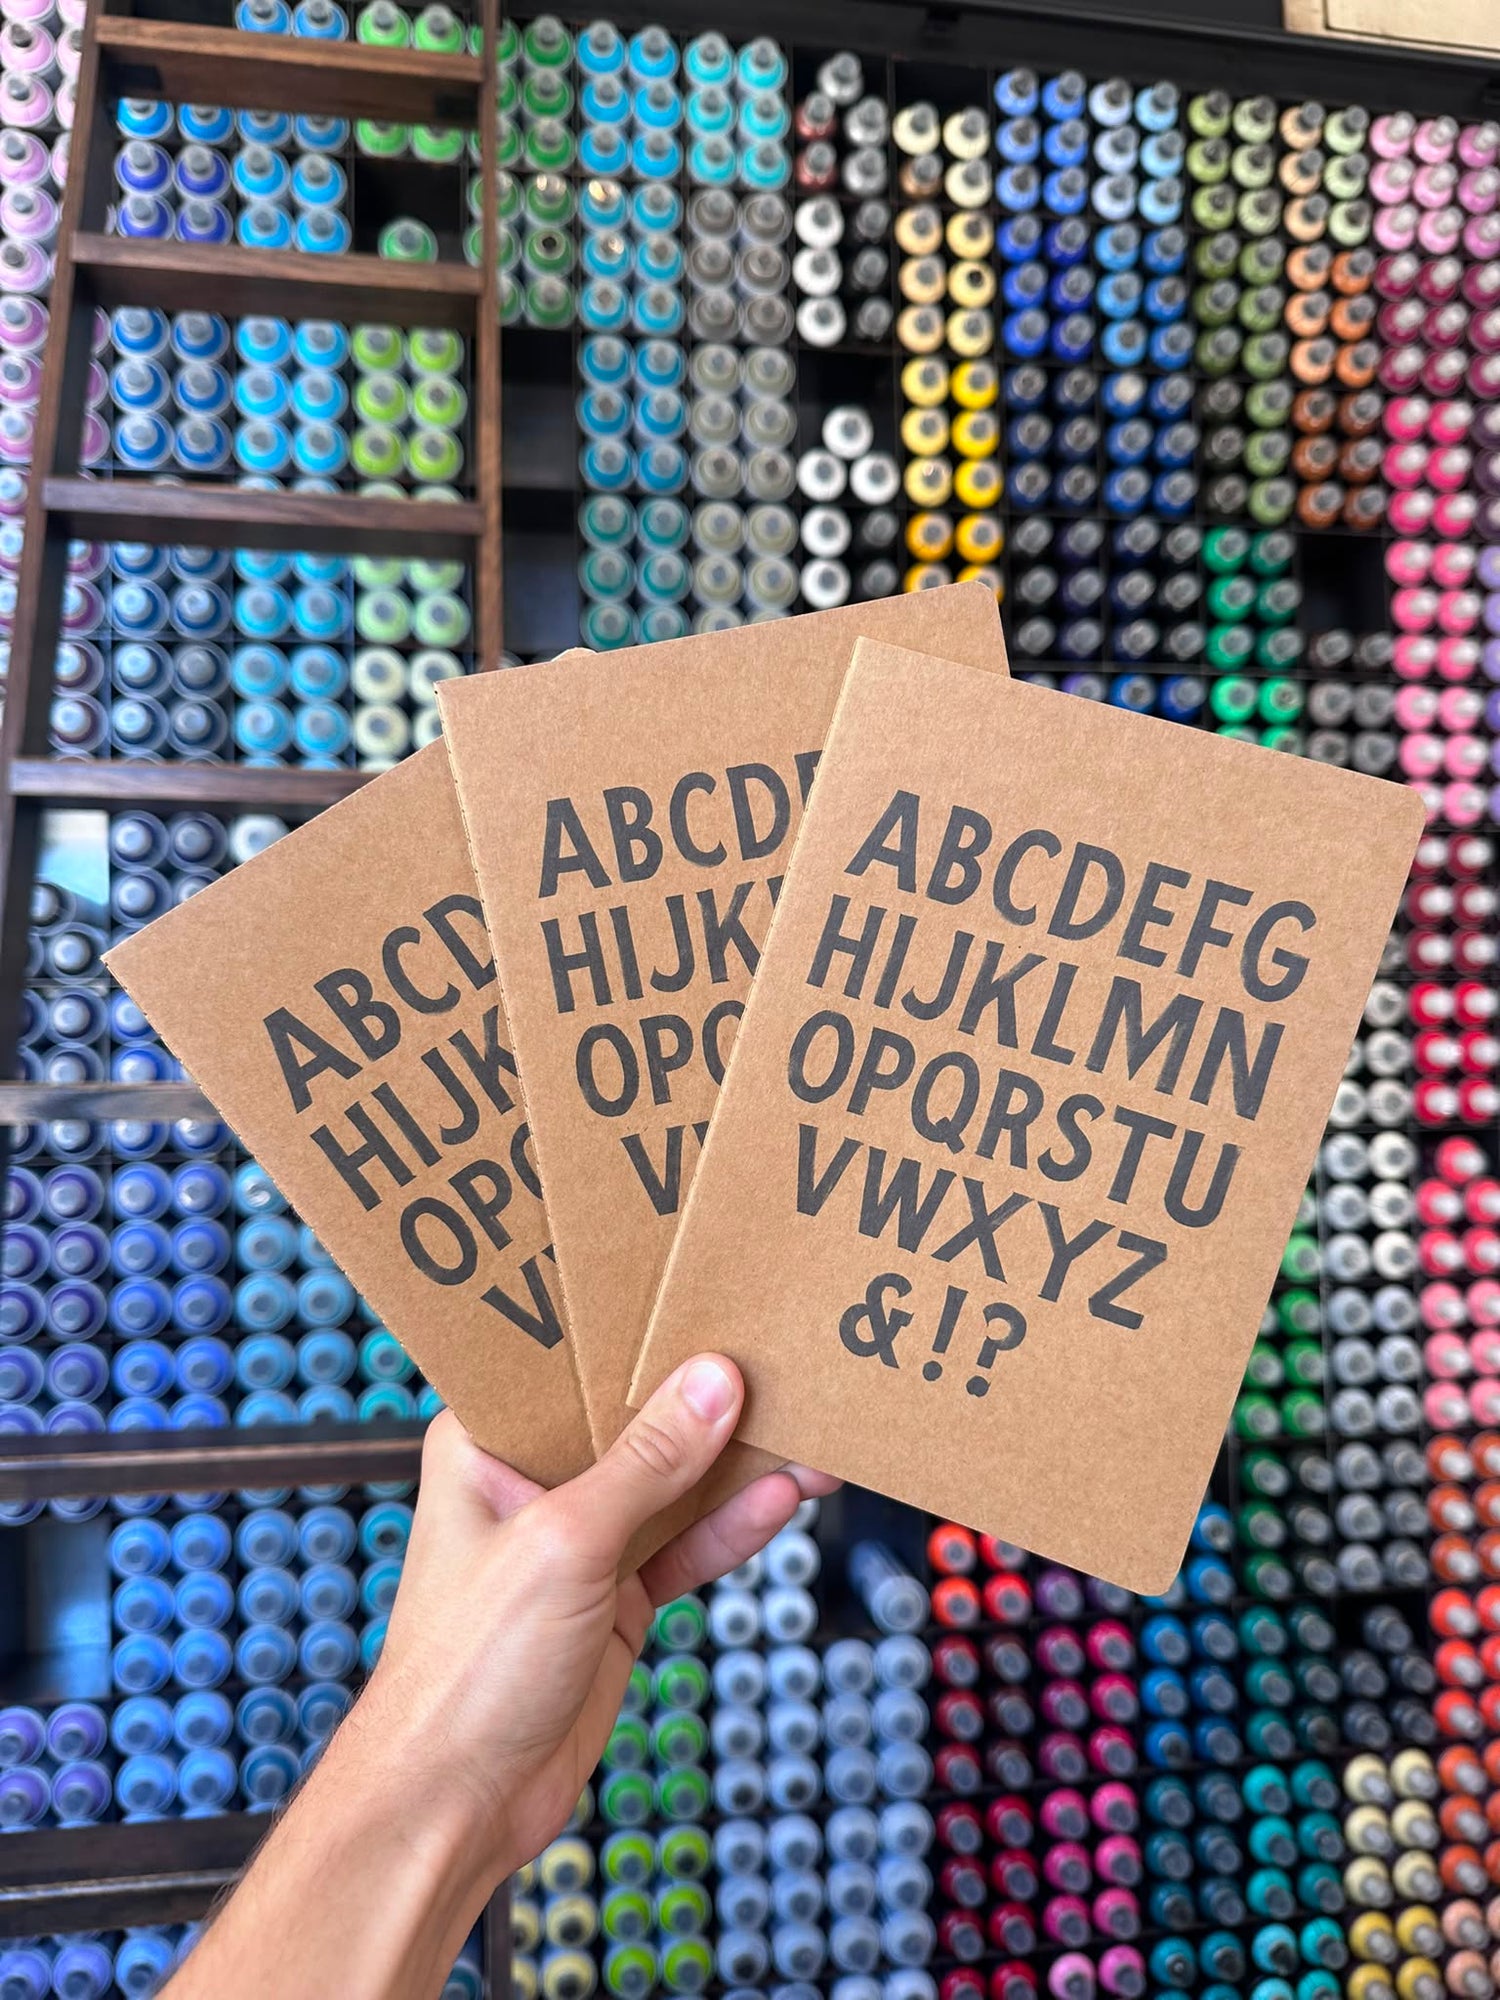 ABCD
HIJK
OPQ
V
ABCDE
HIJK
OPQ
V
ABCDEFG
HIJKLMN
OPQRSTU
VWXYZ
&!?